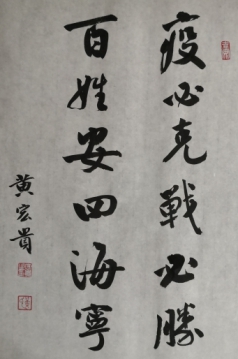 疫必克戰必勝
百姓安四海寧
黄宏貴